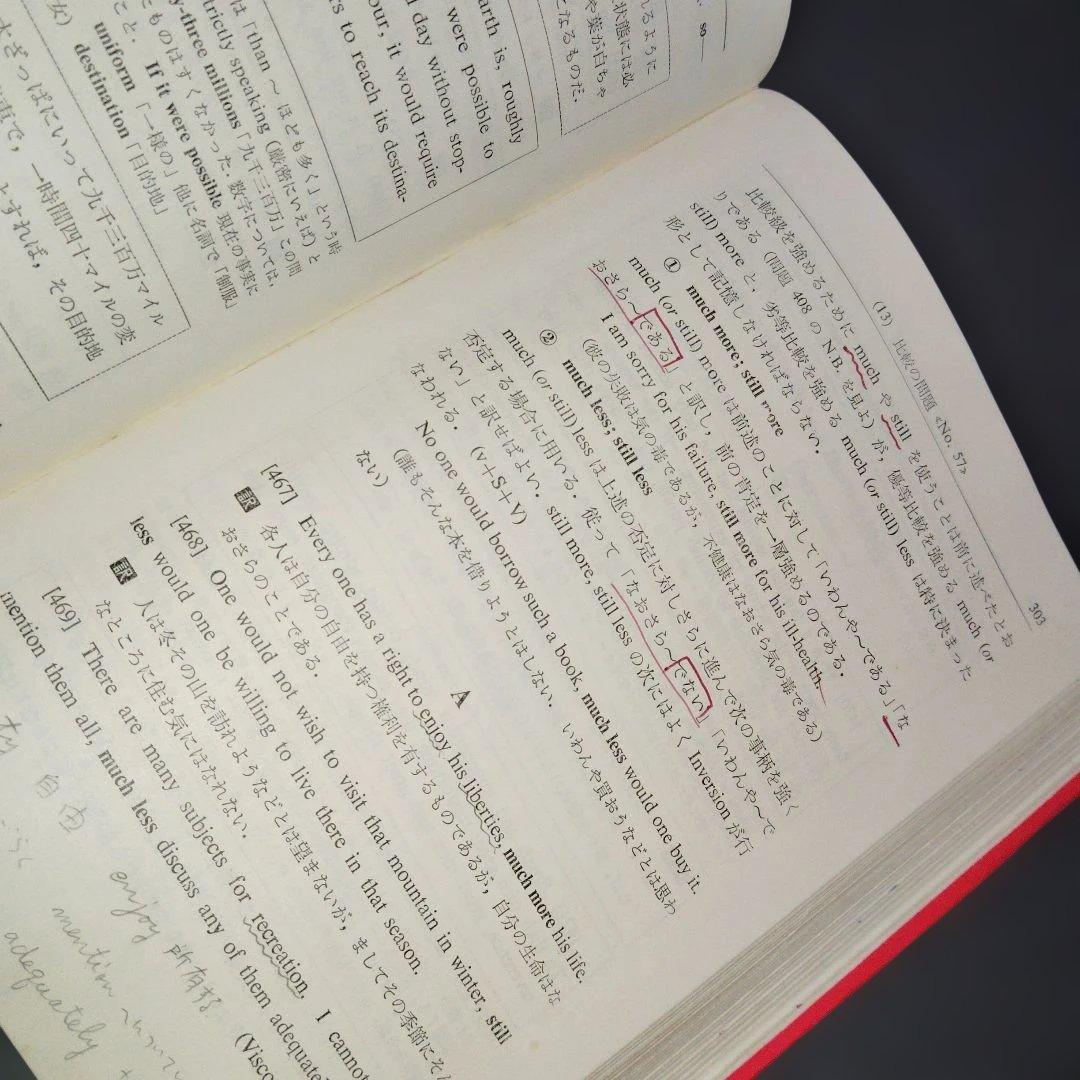 80
れるように
状態には必
や葉が白ちゃ
となるものだ.
arth is, roughly
were possible to
d day without stop-
our, it would require
rs to reach its destina-
は「than ～ ほども多く」という時
trictly speaking (厳密にいえば) と
y-three millions「九千三百万」この間
こと. 数字については,
にものはすくなかった.
If it were possible 現在の事実に
uniform 「一様の」他に名詞で「制服」
destination「目的地」
大ざっぱにいって九千三百万マイル
一時間四十マイルの変
とすれば, その目的地
(13) 比較の問題 《No. 57》
303
比較級を強めるために much や still を使うことは前に述べたとお
りである (問題 408 の N.B. を見よ) が, 優等比較を強める much (or
still) more と, 劣等比較を強める much (or still) less は特に決まった
形として記憶しなければならない.
① much more; still more
much (or still) more は前述のことに対して「いわんや～である」「な
おさら～である」と訳し, 前の肯定を一層強めるのである.
I am sorry for his failure, still more for his ill-health.
(彼の失敗は気の毒であるが, 不健康はなおさら気の毒である)
② much less; still less
much (or still) less は上述の否定に対しさらに進んで次の事柄を強く
否定する場合に用いる. 従って「なおさら～でない」「いわんや～で
ない」と訳せばよい. still more, still less の次にはよく Inversion が行
なわれる. (v+S+V)
No one would borrow such a book, much less would one buy it.
(誰もそんな本を借りようとはしない. いわんや買おうなどとは思わ
ない)
A
[467] Every one has a right to enjoy his liberties, much more his life.
訳 各人は自分の自由を持つ権利を有するものであるが, 自分の生命はな
おさらのことである.
[468] One would not wish to visit that mountain in winter, still
less would one be willing to live there in that season.
訳 人は冬その山を訪れようなどとは望まないが, ましてその季節にそん
なところに住む気にはなれない.
[469] There are many subjects for recreation, I cannot
mention them all, much less discuss any of them adequate
(Visco
ty 自由
enjoy 所有する
mention ～について
adequately